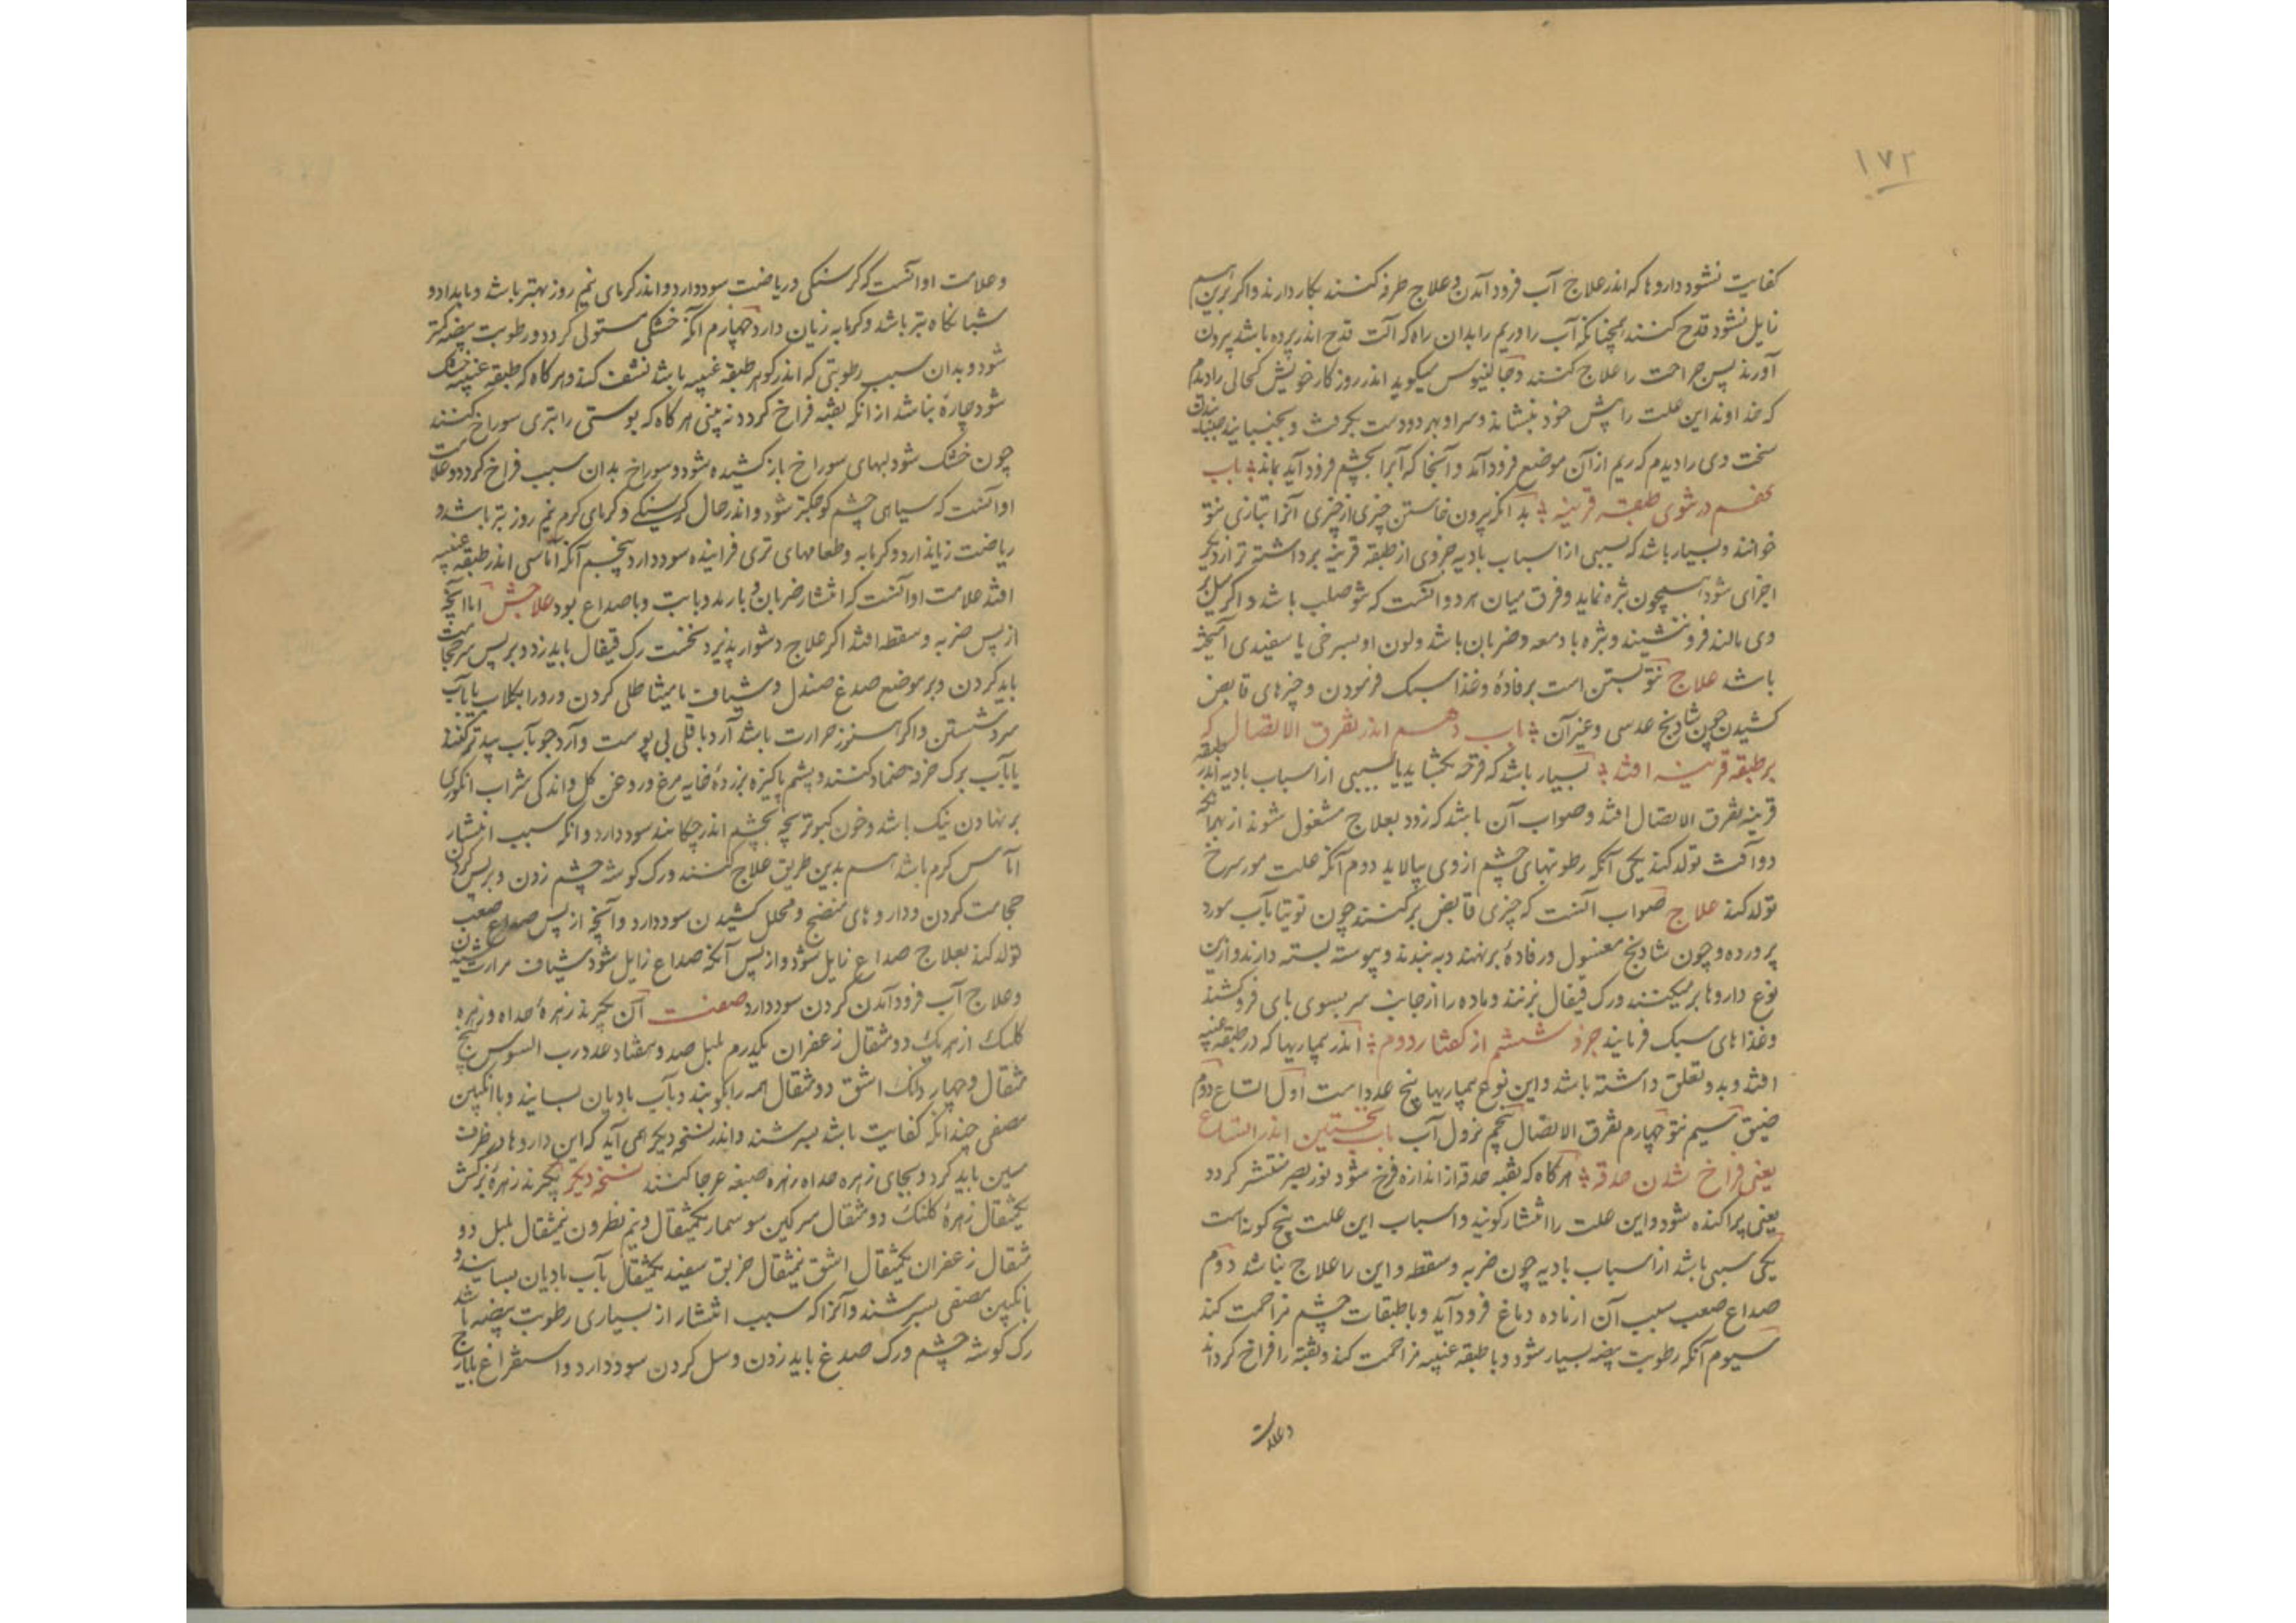 ۱۷۲
کفایت نشود داروها که اندر علاج آب فرود آمدن و علاج طرفه کنند بکار دارند واکر برین هم
زایل نشود قدح کنند همچنانکه آب را و ریم را بدان راه که آلت قدح اندر پرده باشد بیرون
آورند پس جراحت را علاج کنند و جالینوس میکوید اندر روزکار خویش کحالی را دیدم
که خداوند این علت را پیش خود بنشاند و سر او بهر دو دست بکرفت و بجنبانید جنبانیدن
سخت وی را دیدم که ریم از آن موضع فرود آمد و آنجا که آبرا بچشم فرود آید بماند باب
نهم در نتوی طبقه قرنیه بدانکه بیرون خاستن چیزی از چیزی آنرا بتازی نتو
خوانند و بسیار باشد که بسببی از اسباب بادیه جزوی از طبقه قرنیه برداشته تر از دیکر
اجزای شود همچون بثره نماید و فرق میان هر دو آنست که نتو صلب باشد و اکر میل بر
وی مالند فرو ننشیند و بثره با دمعه و ضربان باشد و لون او بسرخی یا سفیدی آمیخته
باشد علاج نتو بستن است برفادهٔ و غذا سبک فرمودن و چیزهای قابض
کشیدن چون شادنج عدسی و غیر آن باب دهم اندر تفرق الاتصال که
بر طبقه قرنیه افتد بسیار باشد که قرحه بکشاید یا بسببی از اسباب بادیه اندر طبقه
قرنیه تفرق الاتصال افتد و صواب آن باشد که زود بعلاج مشغول شوند از بهر آنکه
دو آفت تولد کند یکی آنکه رطوبتهای چشم از وی بپالاید دوم آنکه علت مورسرخ
تولد کند علاج صواب آنست که چیزی قابض برکنند چون توتیا بآب مورد
پرورده و چون شادنج مغسول و رفادهٔ برنهند و به بندند و پیوسته بسته دارند و ازین
نوع داروها بر میکنند و رک قیفال بزنند و ماده را از جانب سر بسوی پای فرو کشند
و غذاهای سبک فرمایند جزو ششم از کفتار دوم اندر بیماریها که در طبقه عنبیه
افتد و بدو تعلق داشته باشد و این نوع بیماریها پنج عدد است اول اتساع دوم
ضیق سیم نتو چهارم تفرق الاتصال پنجم نزول آب باب نخستین اندر اتساع
یعنی فراخ شدن حدقه هرکاه که ثقبه حدقه از اندازه فرخ شود نور بصر منتشر کردد
یعنی پراکنده شود و این علت را انتشار کویند و اسباب این علت پنج کونه است
یکی سببی باشد از اسباب بادیه چون ضربه و سقطه و این را علاج نباشد دوم
صداع صعب سبب آن از ماده دماغ فرود آید و با طبقات چشم مزاحمت کند
سیوم آنکه رطوبت بیضه بسیار شود و با طبقه عنبیه مزاحمت کند و ثقبه را فراخ کرداند
و علامت
و علامت او آنست که کرسنکی و ریاضت سود دارد و اندر کرمای نیم روز بهتر باشد و بامداد و
شبانکاه بتر باشد و کرمابه زیان دارد چهارم آنکه خشکی مستولی کردد و رطوبت بیضه کمتر
شود و بدان سبب رطوبتی که اندر کوهر طبقه عنبیه باشد نشف کند و هرکاه که طبقه عنبیه خشک
شود چارهٔ نباشد از آنکه ثقبه فراخ کردد نه بینی هرکاه که پوستی را بتری سوراخ کنند
چون خشک شود لبهای سوراخ باز کشیده شود و سوراخ بدان سبب فراخ کردد و علامت
او آنست که سیاهی چشم کوچکتر شود و اندر حال کرسنکی و کرمای کرم نیم روز بتر باشد و
ریاضت زیان دارد و کرمابه و طعامهای تری فزاینده سود دارد پنجم آنکه آماسی اندر طبقه عنبیه
افتد علامت او آنست که انتشار ضربان و با رمد و با تب و با صداع بود علاجش اما آنچه
از پس ضربه و سقطه افتد اکر علاج دشوار پذیرد نخست رک قیفال باید زد و بر پس سر حجامت
باید کردن و بر موضع صدغ صندل و شیاف مامیثا طلی کردن و رو را بکلاب یا بآب
سرد شستن و اکر هنوز حرارت باشد آرد باقلی بی پوست و آرد جو بآب بید تر کنند
یا بآب برک خرفه ضماد کنند و پشم پاکیزه بزردهٔ خایه مرغ و روغن کل و اندکی شراب انکوری
بر نهادن نیک باشد و خون کبوتر بچه بچشم اندر چکانند سود دارد و آنکه سبب انتشار
آماس کرم باشد هم بدین طریق علاج کنند و رک کوشه چشم زدن و بر پس کردن
حجامت کردن و داروهای منضج و محلل کشیدن سود دارد و آنچه از پس صداع صعب
تولد کند بعلاج صداع زایل شود و از پس آنکه صداع زایل شود شیاف مرارت کشیدن
و علاج آب فرود آمدن کردن سود دارد صفت آن بکیرند زهرهٔ حداه و زهره
کلنک از هر یک دو مثقال زعفران یکدرم پلپل صد و هفتاد عدد رب السوس پنج
مثقال و چهار دانک اشق دو مثقال همه را بکوبند و بآب بادیان بسایند و با انکبین
مصفی چندانکه کفایت باشد بسرشند و اندر نسخه دیکر همی آید که این داروها در ظرف
مسین باید کرد و بجای زهره حداه زهره ضبعه عرجا کنند نسخه دیکر بکیرند زهرهٔ بزکش
یکمثقال زهرهٔ کلنک دو مثقال سرکین سوسمار یکمثقال و نیم نطرون نیمثقال پلپل دو
مثقال زعفران یکمثقال اشق نیمثقال خربق سفید یکمثقال بآب بادیان بسایند و
بانکبین مصفی بسرشند و آنرا که سبب انتشار از بسیاری رطوبت بیضه باشد
رک کوشه چشم و رک صدغ باید زدن و سل کردن سود دارد و استفراغ بایارج